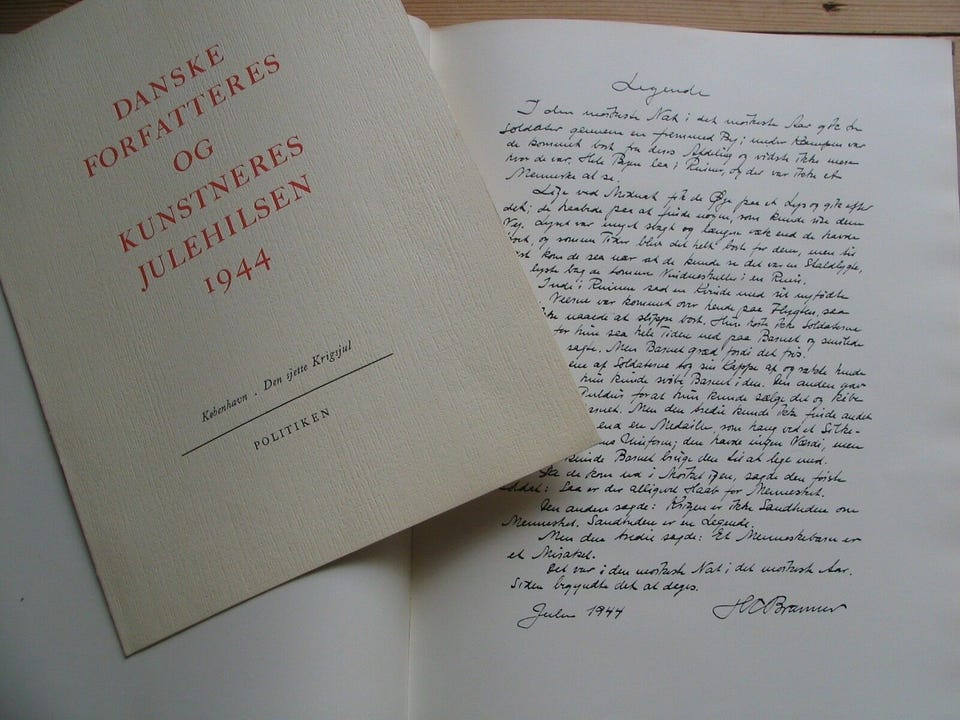 DANSKE
FORFATTERES
OG
KUNSTNERES
JULEHILSEN
1944
København . Den sjette Krigsjul
POLITIKEN
Legende
I den mørkeste Nat i det mørkeste Aar gik tre
Soldater gennem en fremmed By; under Kampen var
de kommet bort fra deres Afdeling og vidste ikke mere
hvor de var. Hele Byen laa i Ruiner, og der var ikke et
Menneske at se.
Lige ved Midnat fik de Øje paa et Lys og gik efter
det; de haabede paa at finde nogen, som kunde vise dem
Vej. Lyset var meget svagt og længere væk end de havde
troet, og somme Tider blev det helt borte for dem, men til
sidst kom de saa nær at de kunde se det var en Staldlygte,
lyste bag de tomme Vindueshuller i en Ruin.
Inde i Ruinen sad en Kvinde med sit nyfødte
Veerne var kommet over hende paa Flugten, saa
ikke naaede at slippe bort. Hun hørte ikke Soldaterne
for hun saa hele Tiden ned paa Barnet og smilede
sagte. Men Barnet græd fordi det frøs.
ene af Soldaterne tog sin Kappe af og rakte hende
hun kunde svøbe Barnet i den. Den anden gav
Guldur for at hun kunde sælge det og købe
Barnet. Men den tredie kunde ikke finde andet
end en Medaille, som hang ved et Silke-
Uniform; den havde ingen Værdi, men
kunde Barnet bruge den til at lege med.
Da de kom ud i Mørket igen, sagde den første
Soldat: Saa er der alligevel Haab for Mennesket.
Den anden sagde: Krigen er ikke Sandheden om
Mennesket. Sandheden er en Legende.
Men den tredie sagde: Et Menneskebarn er
et Mirakel.
Det var i den mørkeste Nat i det mørkeste Aar.
Siden begyndte det at dages.
Julen 1944 HC Branner